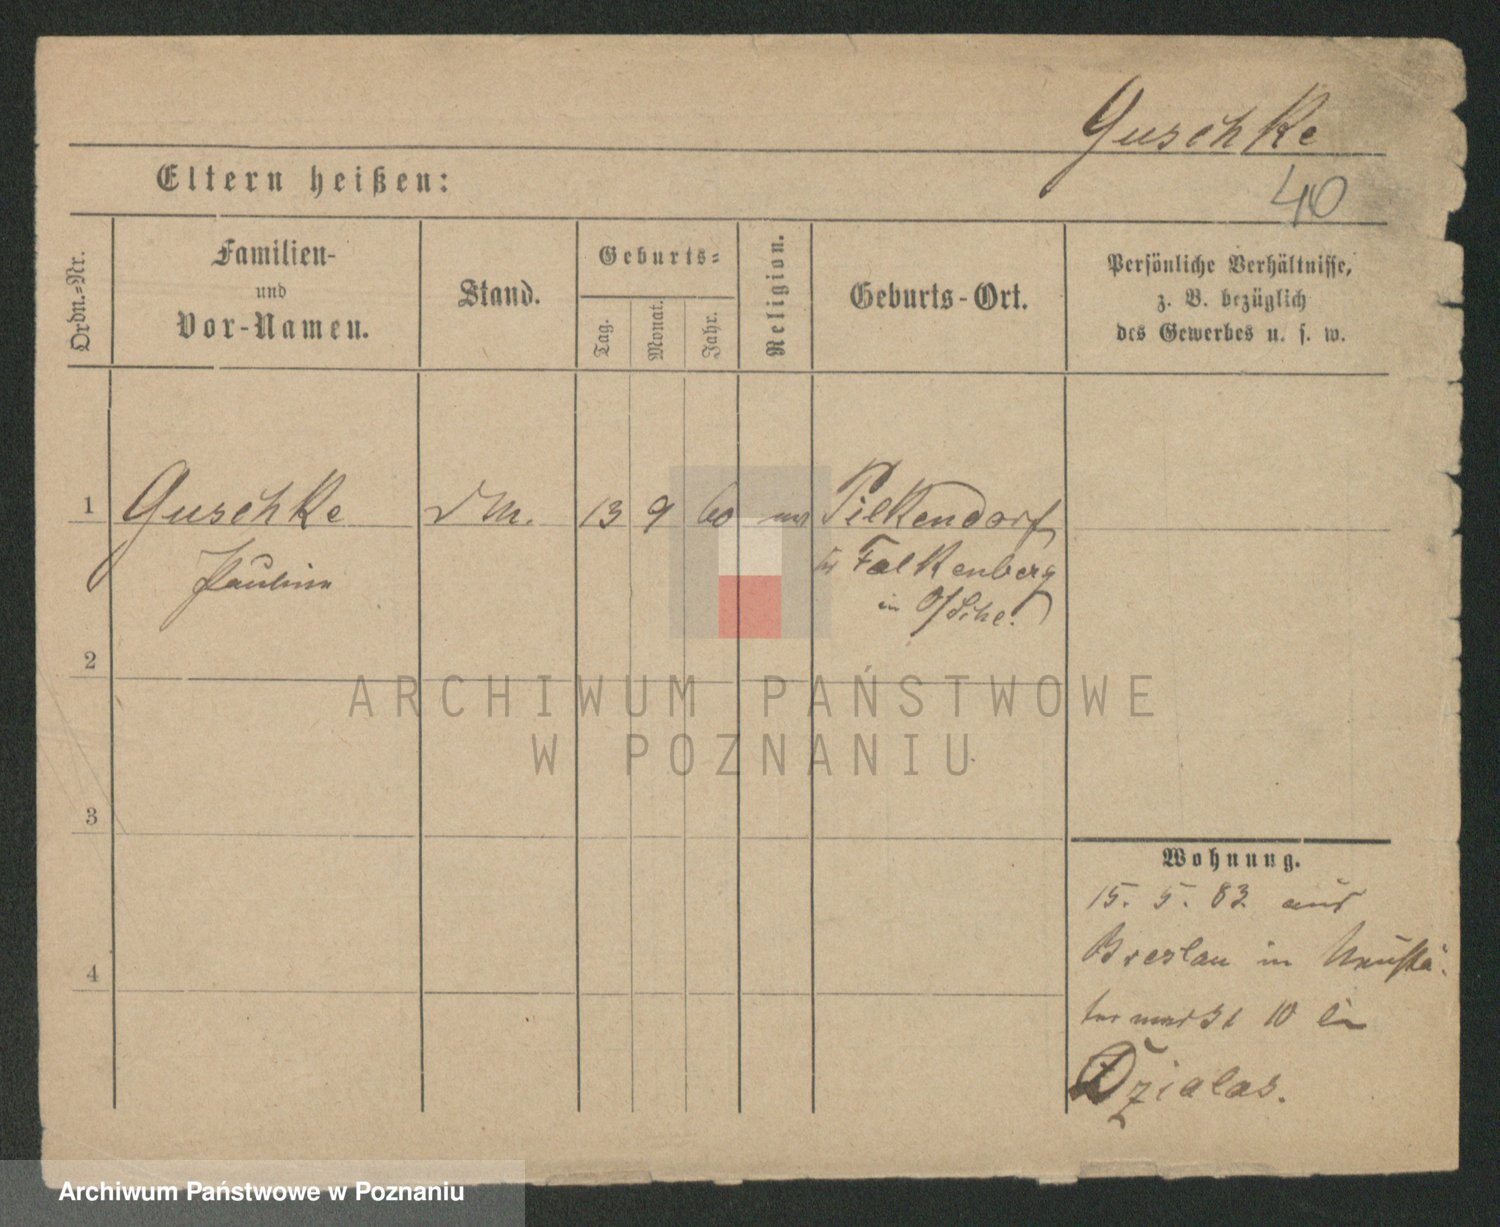 Guschke
40
Eltern heißen:
Ordn.=Nr.
Familien-
und
Vor-Namen.
Stand.
Geburts=
Tag.
Monat.
Jahr.
Religion.
Geburts-Ort.
Persönliche Verhältnisse,
z. B. bezüglich
des Gewerbes u. s. w.
1
Guschke
13 9 60
Pilkendorf
Pauline
Falkenberg
in O/Schl.
2
ARCHIWUM PAŃSTWOWE
W POZNANIU
3
Wohnung.
15. 5. 83 aus
Breslau in Neustä-
ter markt 10 bei
4
Dzialas.
Archiwum Państwowe w Poznaniu